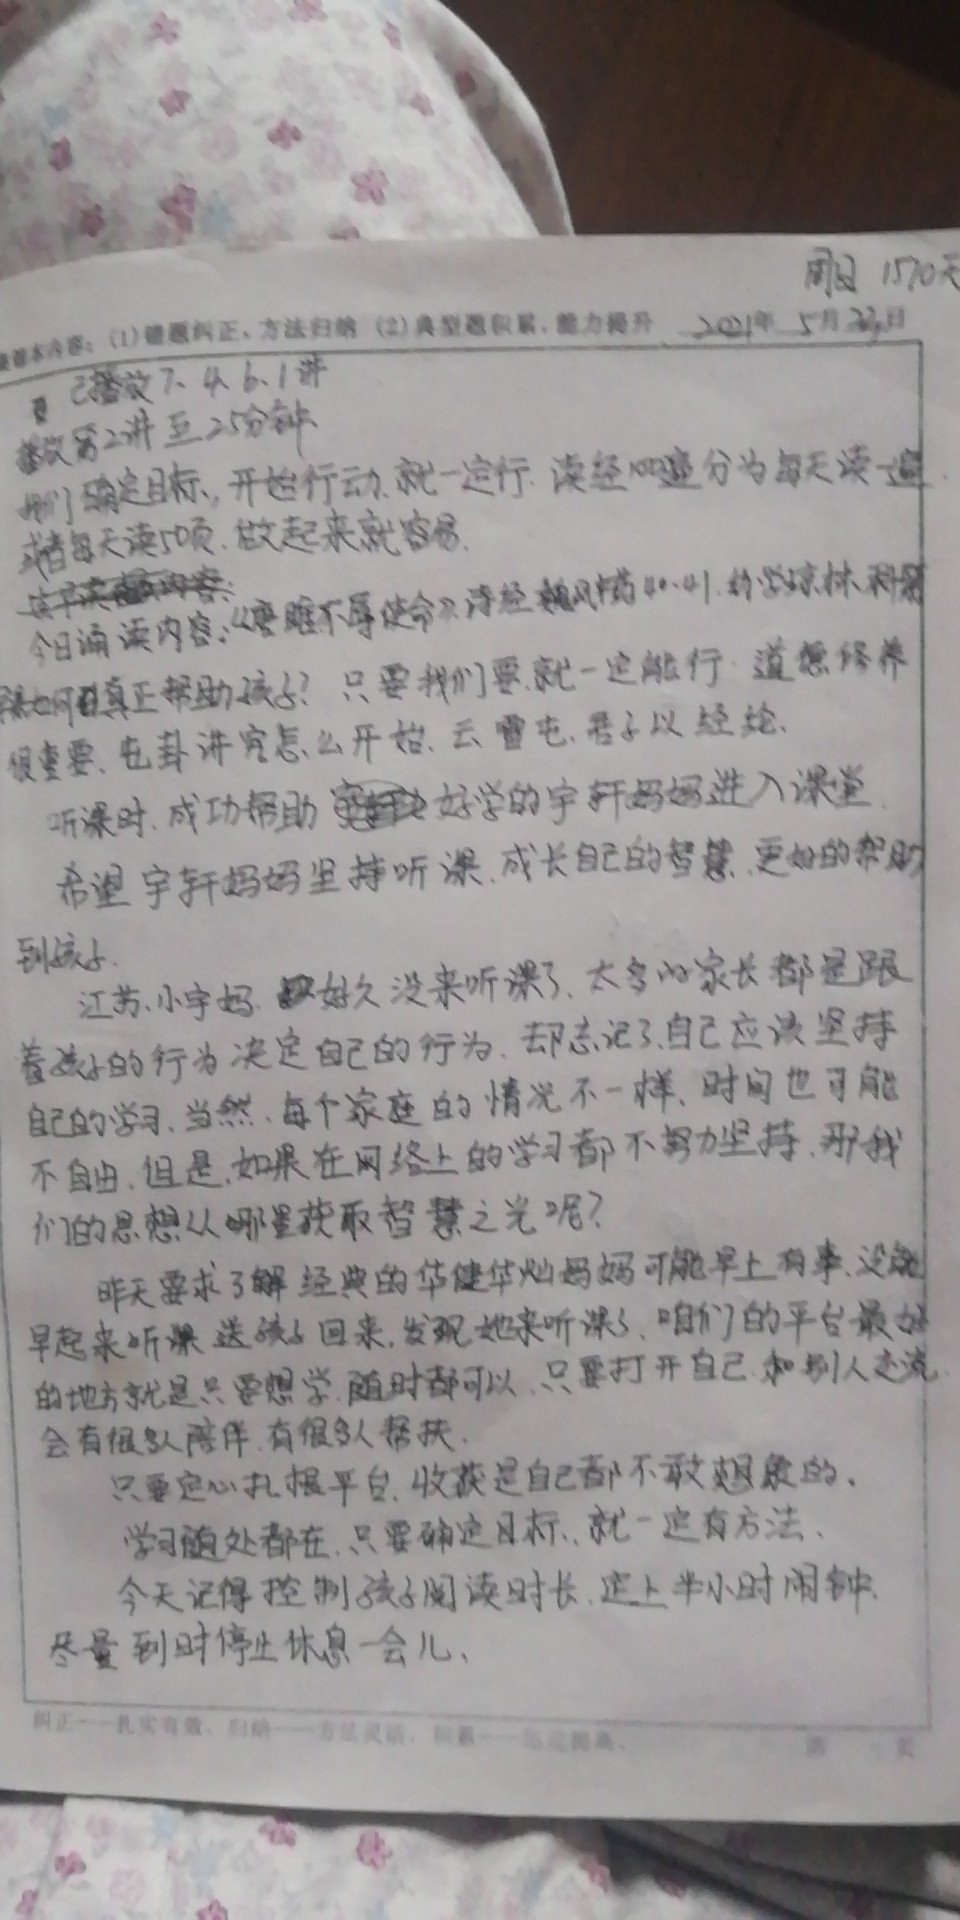 周日 1570天
(1)错题纠正、方法归纳 (2)典型题积累、能力提升 2021年 5月23日
已播放7、4、6、1讲
播放第2讲至25分钟
我们确定目标,开始行动,就一定行.读经 遍分为每天读一遍.
或者每天读50页.做起来就容易.
今日诵读内容:《唐雎不辱使命》诗经 40-41.幼学琼林.科第
如何真正帮助孩子?只要我们要.就一定能行.道德修养
很重要、屯卦讲究怎么开始.云雷屯.君子以经纶.
听课时.成功帮助 好学的宇轩妈妈进入课堂.
希望宇轩妈妈坚持听课.成长自己的智慧.更好的帮助
到孩子.
江苏小宇妈.好久没来听课了.太多的家长都是跟
着孩子的行为决定自己的行为.却忘记了自己应该坚持
自己的学习.当然.每个家庭的情况不一样、时间也可能
不自由.但是.如果在网络上的学习都不努力坚持.那我
们的思想从哪里获取智慧之光呢?
昨天要求了解经典的华健华灿妈妈可能早上有事.没能
早起来听课 送孩子回来.发现她来听课了.咱们的平台最好
的地方就是只要想学.随时都可以.只要打开自己.和别人交流.
会有很多人陪伴.有很多人帮扶.
只要定心扎根平台.收获是自己都不敢想象的.
学习随处都在.只要确定目标.就一定有方法.
今天记得控制孩子阅读时长.定上半小时闹钟.
尽量到时停止休息一会儿.
纠正——扎实有效.归纳——方法灵活.积累——
第 页